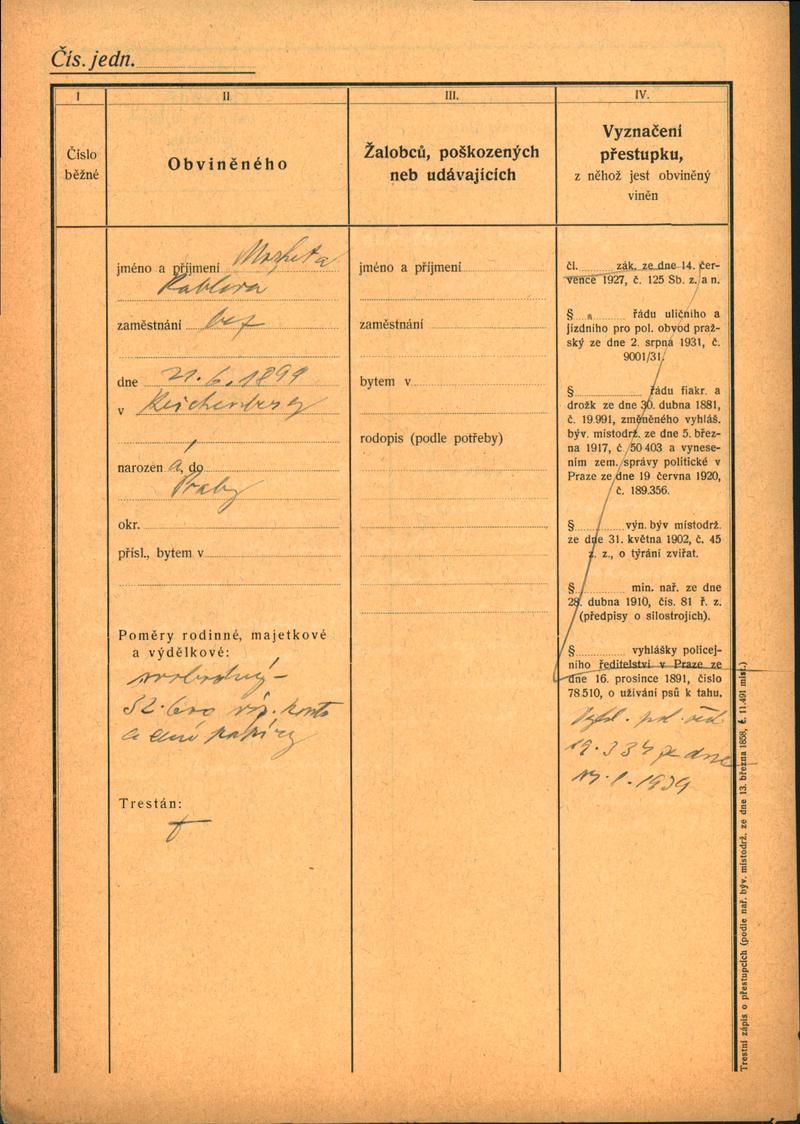 Čís. jedn.
I
II
III.
IV.
Číslo
běžné
Obviněného
Žalobců, poškozených
neb udávajících
Vyznačení
přestupku,
z něhož jest obviněný
viněn
jméno a příjmení Markéta
zaměstnání bez
dne 21.6.1899
v Reichenberg
narozen á, do
Prahy
okr.
přísl., bytem v
Poměry rodinné, majetkové
a výdělkové:
32.600
konto
a papíry
Trestán:
jméno a příjmení
zaměstnání
bytem v
rodopis (podle potřeby)
čl. zák. ze dne 14. čer-
vence 1927, č. 125 Sb. z. a n.
§ a řádu uličního a
jízdního pro pol. obvod praž-
ský ze dne 2. srpna 1931, č.
9001/31.
§ řádu fiakr. a
drožk ze dne 30. dubna 1881,
č. 19.991, změněného vyhláš.
býv. místodrž. ze dne 5. břez-
na 1917, č. 50 403 a vynese-
ním zem. správy politické v
Praze ze dne 19 června 1920,
č. 189.356.
§ výn. býv místodrž.
ze dne 31. května 1902, č. 45
z. z., o týrání zvířat.
§ min. nař. ze dne
28. dubna 1910, čís. 81 ř. z.
(předpisy o silostrojích).
§ vyhlášky policej-
ního ředitelství v Praze ze
dne 16. prosince 1891, číslo
78.510, o užívání psů k tahu.
Vyhl. pol. řed.
19.334 ze dne
1939
Trestní zápis o přestupcích (podle nař. býv. místodrž. ze dne 13. března 1858, č. 11.491 míst.)